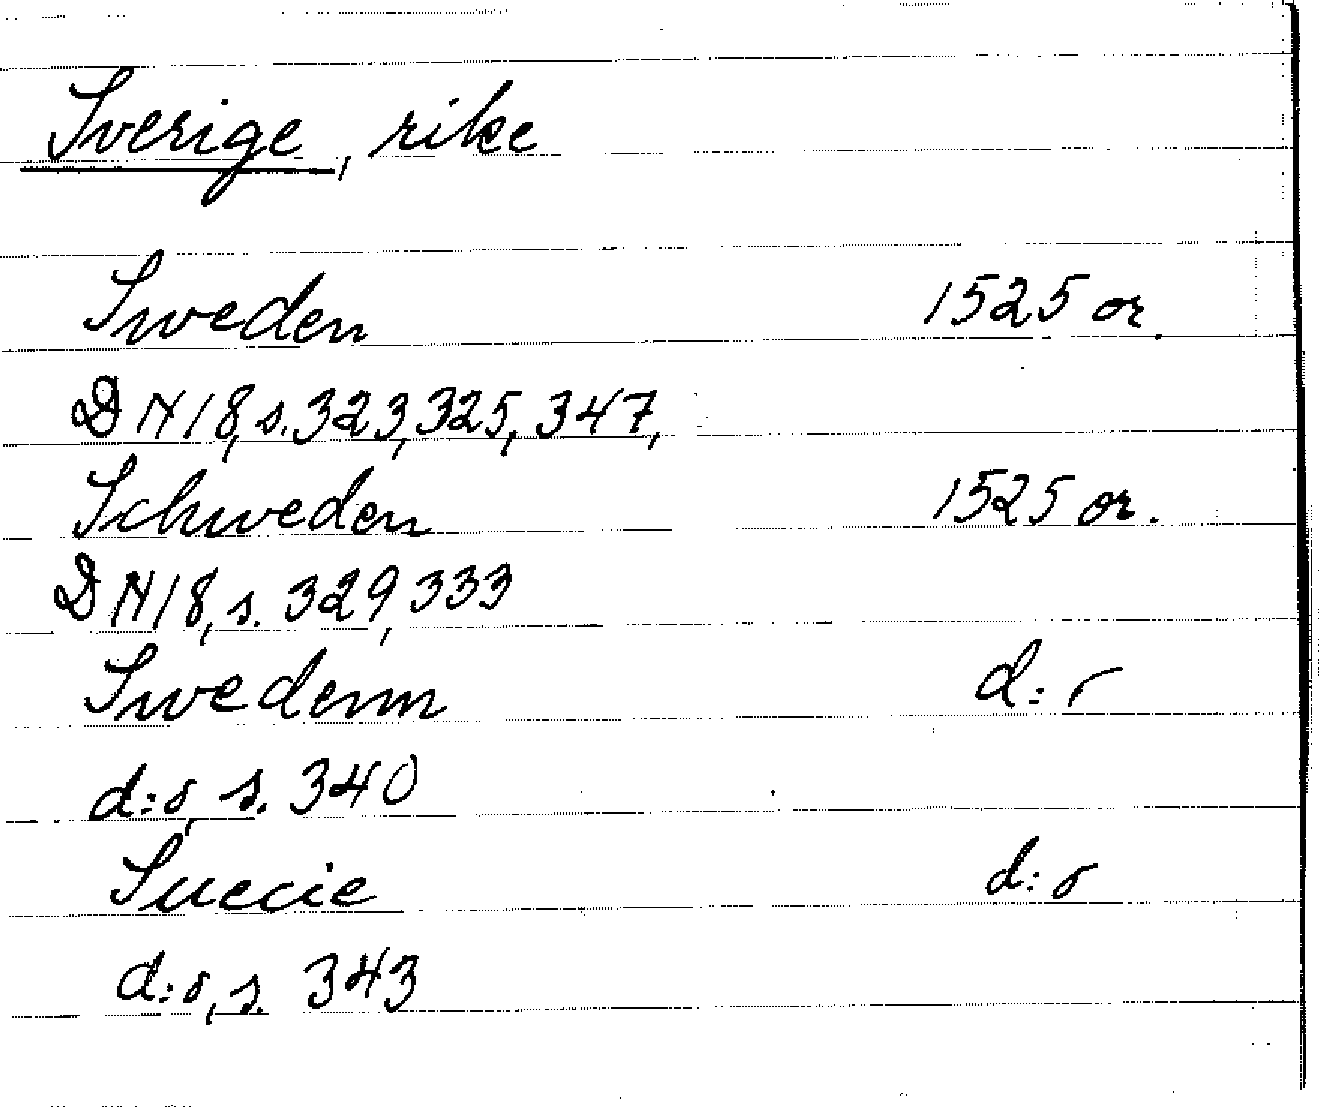 Sverige, rike
Sweden 1525 or.
DN 18, s. 323, 325, 347,
Schweden 1525 or.
DN 18, s. 329, 333
Swedenn d:o
d:o, s. 340
Suecie d:o
d:o, s. 343